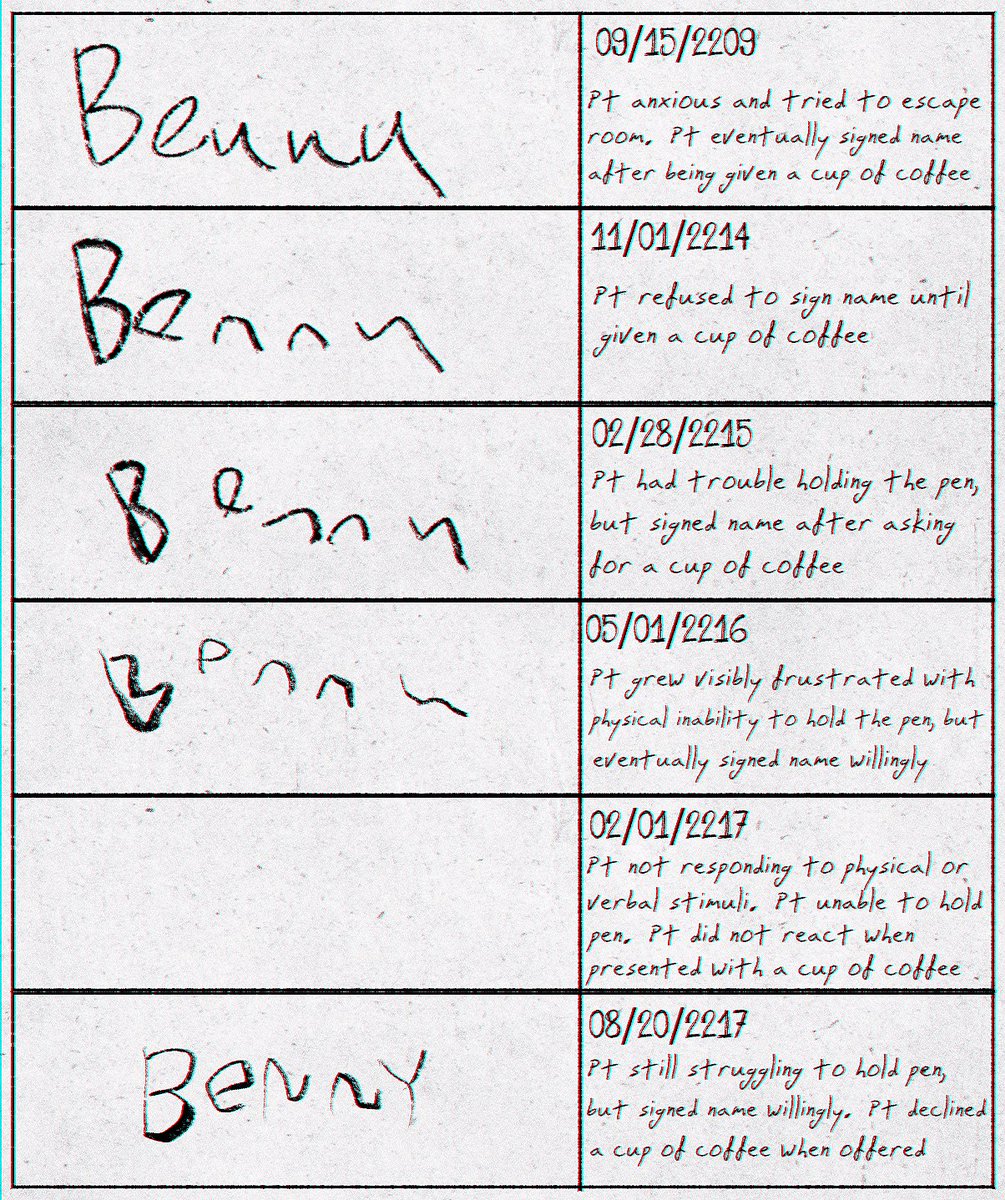 Benny
09/15/2209
Pt anxious and tried to escape
room. Pt eventually signed name
after being given a cup of coffee
Benny
11/01/2214
Pt refused to sign name until
given a cup of coffee
Benny
02/28/2215
Pt had trouble holding the pen,
but signed name after asking
for a cup of coffee
Benny
05/01/2216
Pt grew visibly frustrated with
physical inability to hold the pen, but
eventually signed name willingly
02/01/2217
Pt not responding to physical or
verbal stimuli. Pt unable to hold
pen. Pt did not react when
presented with a cup of coffee
BeNNY
08/20/2217
Pt still struggling to hold pen,
but signed name willingly. Pt declined
a cup of coffee when offered